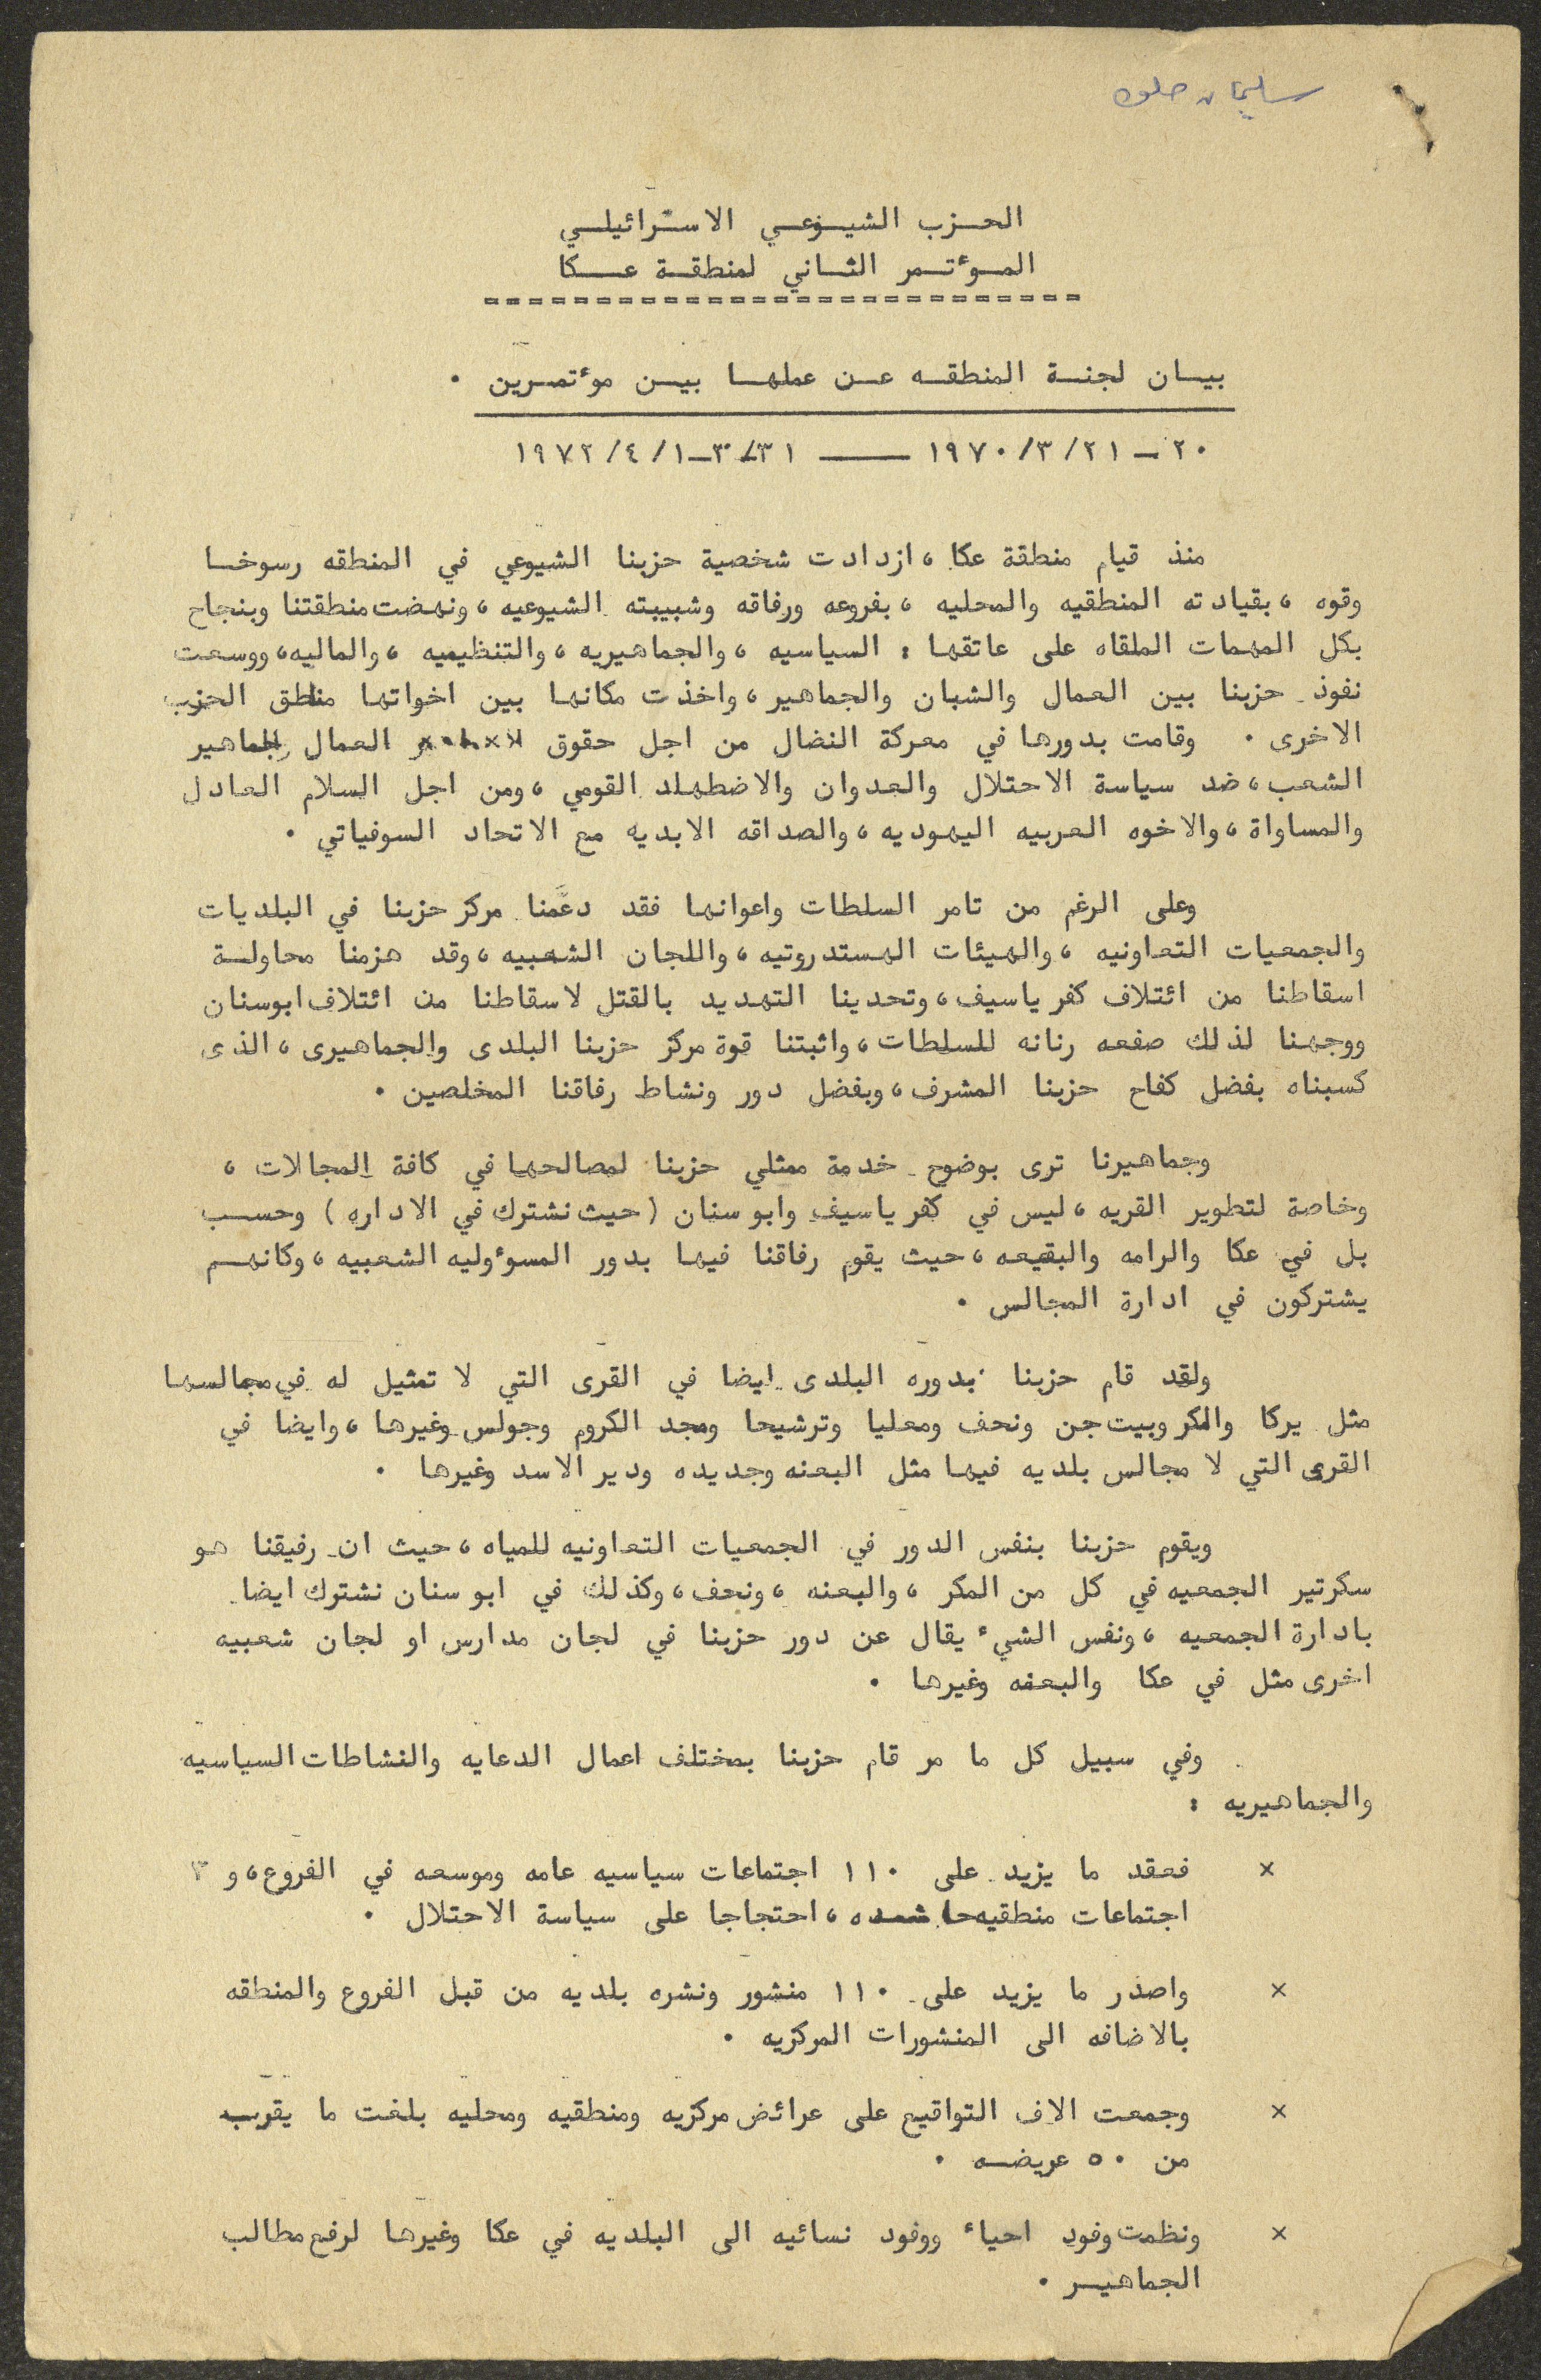 سليمان حلوه
الحزب الشيوعي الاسرائيلي
الموءتمر الثاني لمنطقة عكا
===========================
بيان لجنة المنطقه عن عملها بين موءتمرين .
٢٠ - ٢١/٣/١٩٧٠ —— ٣١/٣-١/٤/١٩٧٢
منذ قيام منطقة عكا ، ازدادت شخصية حزبنا الشيوعي في المنطقه رسوخا
وقوه ، بقيادته المنطقيه والمحليه ، بفروعه ورفاقه وشبيبته الشيوعيه ، ونهضت منطقتنا وبنجاح
بكل المهمات الملقاه على عاتقها : السياسيه ، والجماهيريه ، والتنظيميه ، والماليه ، ووسعت
نفوذ حزبنا بين العمال والشبان والجماهير ، واخذت مكانها بين اخواتها مناطق الحزب
الاخرى . وقامت بدورها في معركة النضال من اجل حقوق العمال جماهير
الشعب ، ضد سياسة الاحتلال والعدوان والاضطهاد القومي ، ومن اجل السلام العادل
والمساواة ، والاخوه العربيه اليهوديه ، والصداقه الابديه مع الاتحاد السوفياتي .
وعلى الرغم من تامر السلطات واعوانها فقد دعّمنا مركز حزبنا في البلديات
والجمعيات التعاونيه ، والهيئات الهستدروتيه ، واللجان الشعبيه ، وقد هزمنا محاولة
اسقاطنا من ائتلاف كفر ياسيف ، وتحدينا التهديد بالقتل لاسقاطنا من ائتلاف ابوسنان
ووجهنا لذلك صفعه رنانه للسلطات ، واثبتنا قوة مركز حزبنا البلدى والجماهيرى ، الذى
كسبناه بفضل كفاح حزبنا المشرف ، وبفضل دور ونشاط رفاقنا المخلصين .
وجماهيرنا ترى بوضوح خدمة ممثلي حزبنا لمصالحها في كافة المجالات ،
وخاصة لتطوير القريه ، ليس في كفر ياسيف وابو سنان ( حيث نشترك في الاداره ) وحسب
بل في عكا والرامه والبقيعه ، حيث يقوم رفاقنا فيها بدور المسوءوليه الشعبيه ، وكانهم
يشتركون في ادارة المجالس .
ولقد قام حزبنا بدوره البلدى ايضا في القرى التي لا تمثيل له في مجالسها
مثل يركا والمكر وبيت جن ونحف ومعليا وترشيحا ومجد الكروم وجولس وغيرها ، وايضا في
القرى التي لا مجالس بلديه فيها مثل البعنه وجديده ودير الاسد وغيرها .
ويقوم حزبنا بنفس الدور في الجمعيات التعاونيه للمياه ، حيث ان رفيقنا هو
سكرتير الجمعيه في كل من المكر ، والبعنه ، ونحف ، وكذلك في ابو سنان نشترك ايضا
بادارة الجمعيه ، ونفس الشيء يقال عن دور حزبنا في لجان مدارس او لجان شعبيه
اخرى مثل في عكا والبعنه وغيرها .
وفي سبيل كل ما مر قام حزبنا بمختلف اعمال الدعايه والنشاطات السياسيه
والجماهيريه :
× فعقد ما يزيد على ١١٠ اجتماعات سياسيه عامه وموسعه في الفروع ، و ٣
اجتماعات منطقيه حاشده ، احتجاجا على سياسة الاحتلال .
× واصدر ما يزيد على ١١٠ منشور ونشره بلديه من قبل الفروع والمنطقه
بالاضافه الى المنشورات المركزيه .
× وجمعت الاف التواقيع على عرائض مركزيه ومنطقيه ومحليه بلغت ما يقرب
من ٥٠ عريضه .
× ونظمت وفود احياء ووفود نسائيه الى البلديه في عكا وغيرها لرفع مطالب
الجماهير .